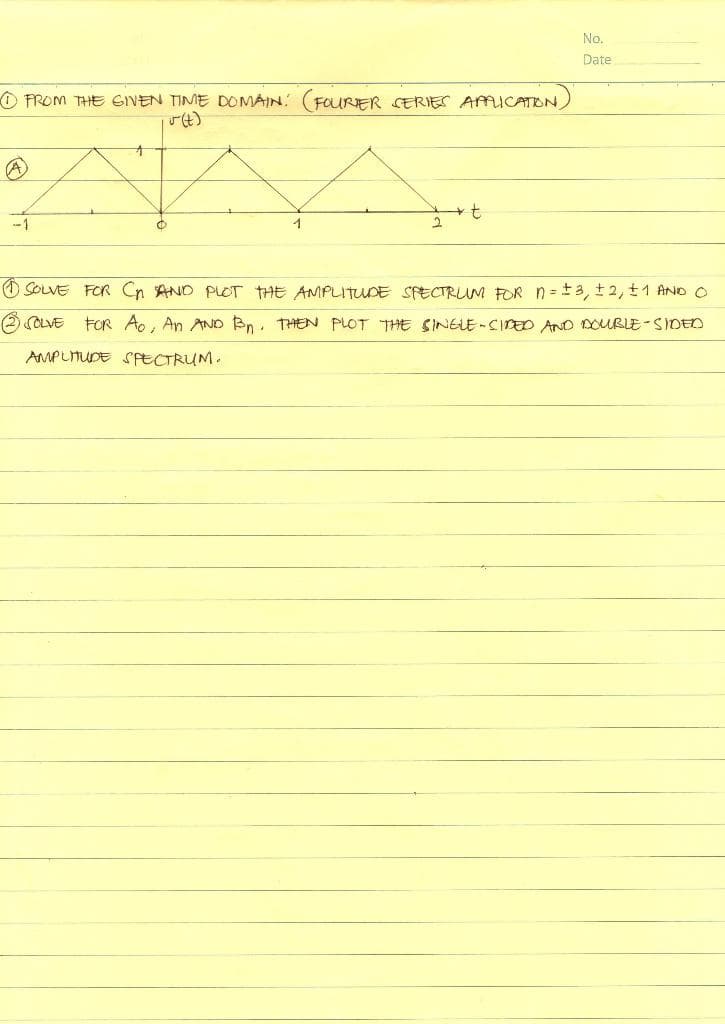 No.
Date
① FROM THE GIVEN TIME DOMAIN: (FOURIER SERIES APPLICATION)
v(t)
1
Ⓐ
t
-1 0 1 2
① SOLVE FOR Cn AND PLOT THE AMPLITUDE SPECTRUM FOR n = ±3, ±2, ±1 AND 0
② SOLVE FOR A0, An AND Bn. THEN PLOT THE SINGLE-SIDED AND DOUBLE-SIDED
AMPLITUDE SPECTRUM.